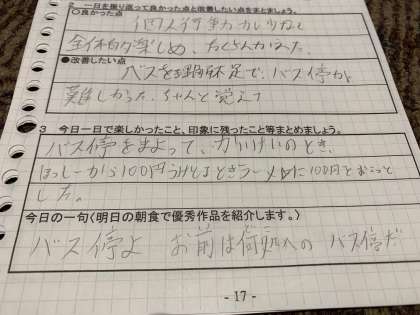 2 一日を振り返って良かった点と改善したい点をまとめましょう。
○良かった点
個人行動が少なく
全体的に楽しめ、
●改善したい点
バスを理解不足で、バス停が
難しかった。ちゃんと覚えて
3 今日一日で楽しかったこと、印象に残ったこと等まとめましょう。
バス停をまよって、
100円 ときラーメン に100円を
した。
今日の一句(明日の朝食で優秀作品を紹介します。)
バス停よ お前は何処への バス停だ
- 17 -